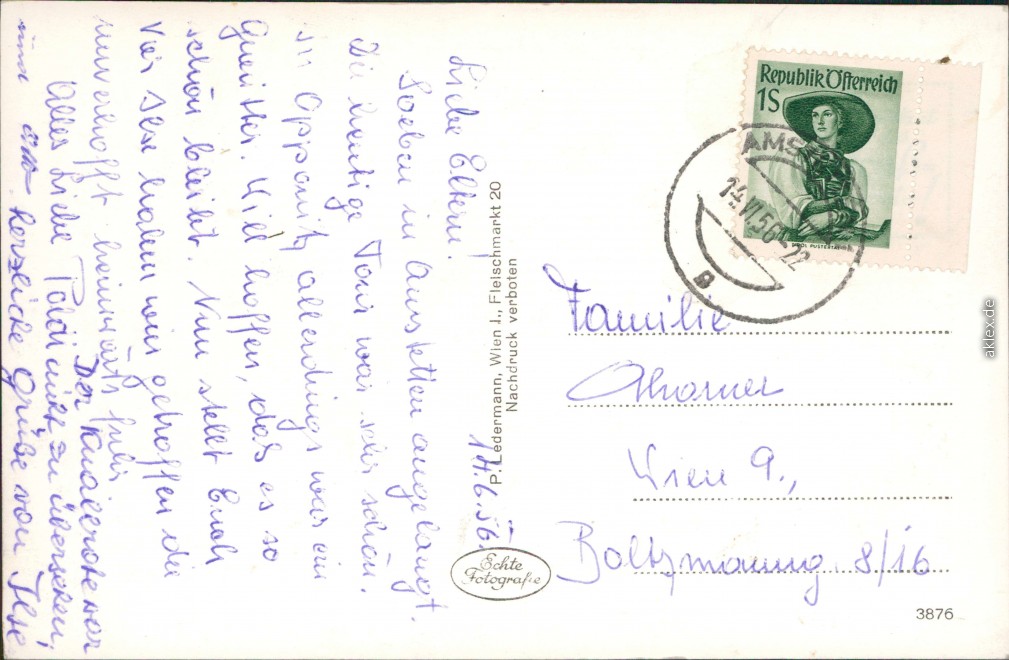 14.6.56.
Liebe Eltern!
Soeben in Amstetten angelangt.
Die heutige Tour war sehr schön.
in Opponitz allerdings war ein
Gewitter. Will hoffen, daß es so
schön bleibt. Nun stellt Euch
vor Ilse haben wir getroffen die
unverhofft heimwärts fuhr.
Alles Liebe Poldi
Der Knallrote war
nicht zu übersehen,
und herzliche Grüße von Ilse
P. Ledermann, Wien I., Fleischmarkt 20
Nachdruck verboten
Echte
Fotografie
Republik Österreich
1S
TIROL PUSTERTAL
AMS
14.VI.56-22
a
Familie
Ahorner
Wien 9.,
Boltzmanng. 8/16
3876
aklex.de